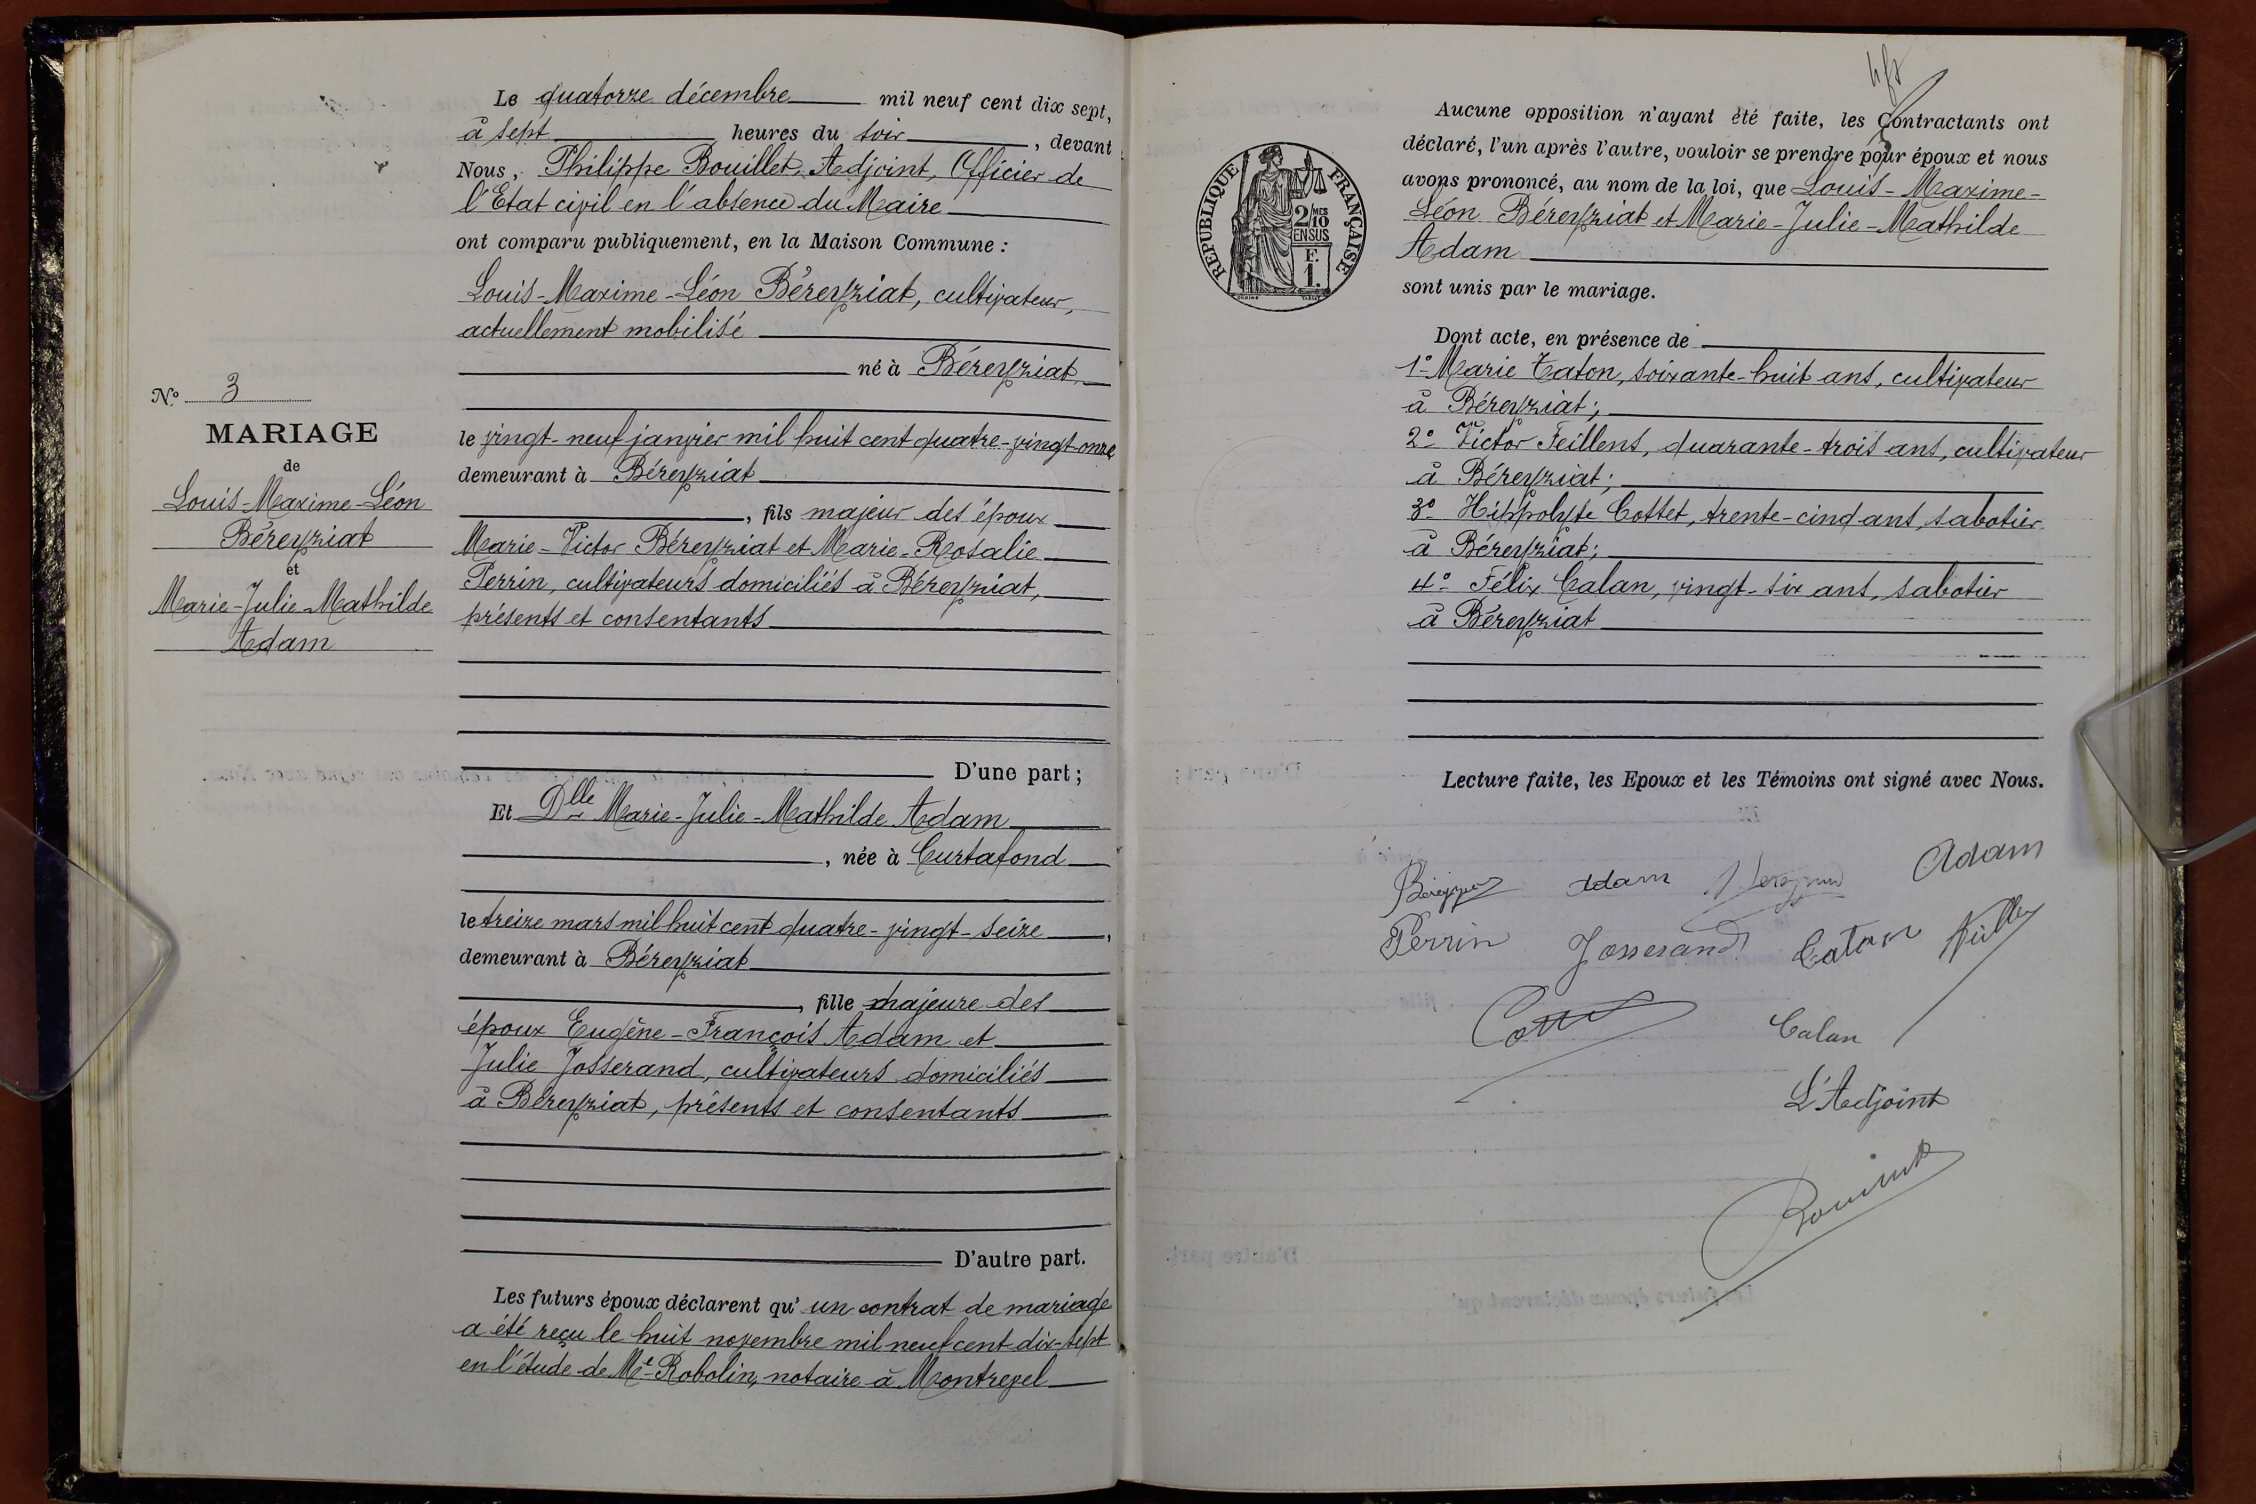 Le quatorze décembre mil neuf cent dix sept,
à sept heures du soir, devant
Nous, Philippe Bouillet, Adjoint, Officier de
l'Etat civil en l'absence du Maire
ont comparu publiquement, en la Maison Commune :
Louis-Maxime-Léon Béreyziat, cultivateur,
actuellement mobilisé
né à Béreyziat
le vingt-neuf janvier mil huit cent quatre-vingt-onze
demeurant à Béreyziat
, fils majeur des époux
Marie-Victor Béreyziat et Marie-Rosalie
Perrin, cultivateurs domiciliés à Béreyziat,
présents et consentants
D'une part ;
Et Dlle Marie-Julie-Mathilde Adam
, née à Curtafond
le treize mars mil huit cent quatre-vingt-seize,
demeurant à Béreyziat
, fille majeure des
époux Eugène-François Adam et
Julie Josserand, cultivateurs domiciliés
à Béreyziat, présents et consentants
D'autre part.
Les futurs époux déclarent qu'un contrat de mariage
a été reçu le huit novembre mil neuf cent dix-sept
en l'étude de Me Robolin, notaire à Montrevel
No 3
MARIAGE
de
Louis-Maxime-Léon
Béreyziat
et
Marie-Julie-Mathilde
Adam
RÉPUBLIQUE FRANÇAISE
2/10 MES
EN SUS
F.
1.
Aucune opposition n'ayant été faite, les Contractants ont
déclaré, l'un après l'autre, vouloir se prendre pour époux et nous
avons prononcé, au nom de la loi, que Louis-Maxime-
Léon Béreyziat et Marie-Julie-Mathilde
Adam
sont unis par le mariage.
Dont acte, en présence de
1º Marie Caton, soixante-huit ans, cultivateur
à Béreyziat ;
2º Victor Feillens, quarante-trois ans, cultivateur
à Béreyziat ;
3º Hippolyte Cottet, trente-cinq ans, sabotier
à Béreyziat ;
4º Félix Calan, vingt-six ans, sabotier
à Béreyziat
Lecture faite, les Epoux et les Témoins ont signé avec Nous.
Adam Adam
Perrin Josserand Caton
Calan
L'Adjoint